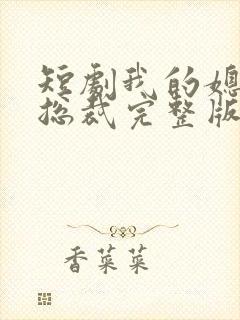 短剧我的媳
总裁完整版
香菜菜